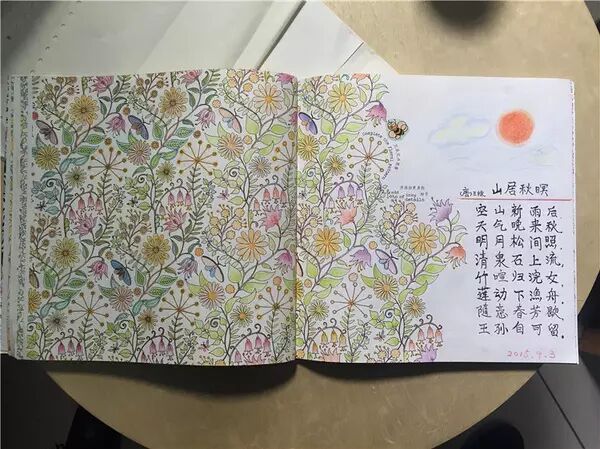 complete
(唐)王维 山居秋暝
空山新雨后,
天气晚来秋.
明月松间照,
清泉石上流.
竹喧归浣女,
莲动下漁舟.
随意春芳歇,
王孙自可留.
2015.9.3